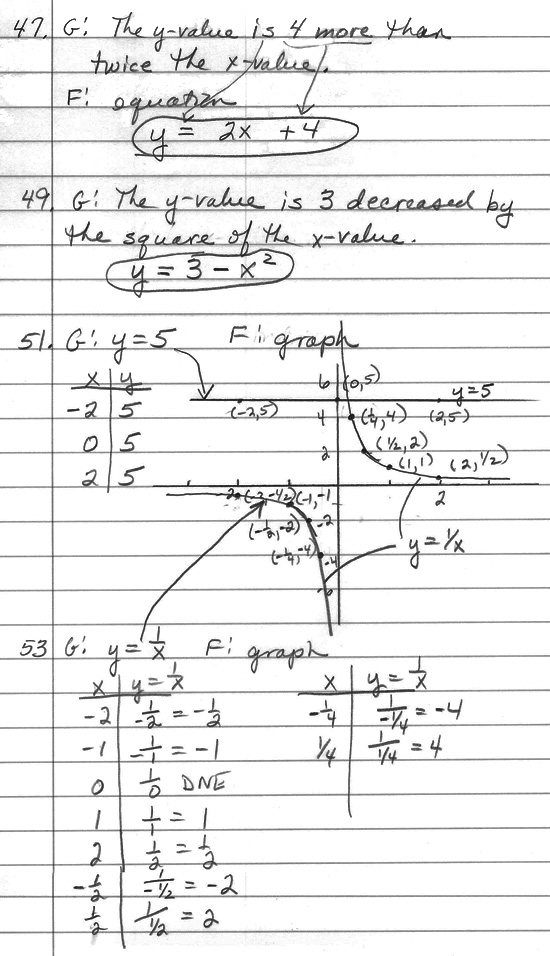 47. G: The y-value is 4 more than
twice the x-value.
F: equation
y = 2x + 4
49. G: The y-value is 3 decreased by
the square of the x-value.
y = 3 - x²
51. G: y = 5 F: graph
x | y
-2 | 5
0 | 5
2 | 5
6 (0,5)
y=5
(-2,5) 4 (¼,4) (2,5)
2 (½,2)
(1,1) (2,½)
-2 (-2,-½) (-1,-1) 2
(-½,-2) -2
(-¼,-4) -4
y = 1/x
-6
53 G: y = 1/x F: graph
x | y = 1/x
-2 | 1/-2 = -1/2
-1 | 1/-1 = -1
0 | 1/0 DNE
1 | 1/1 = 1
2 | 1/2 = 1/2
-1/2 | 1/-1/2 = -2
1/2 | 1/1/2 = 2
x | y = 1/x
-1/4 | 1/-1/4 = -4
1/4 | 1/1/4 = 4